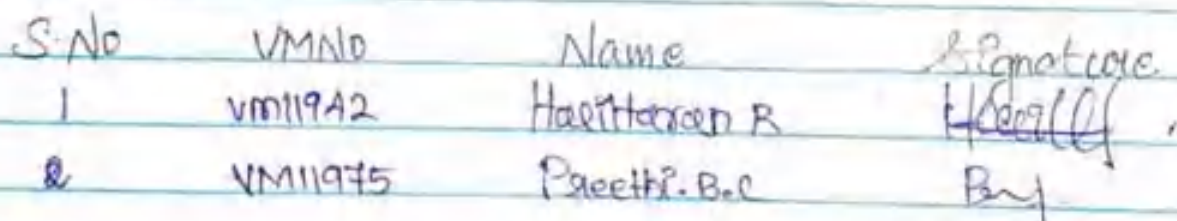 S.No VMNO Name Signature
1 VM11942 Hariharan R
2 VM11975 Preethi.B.C